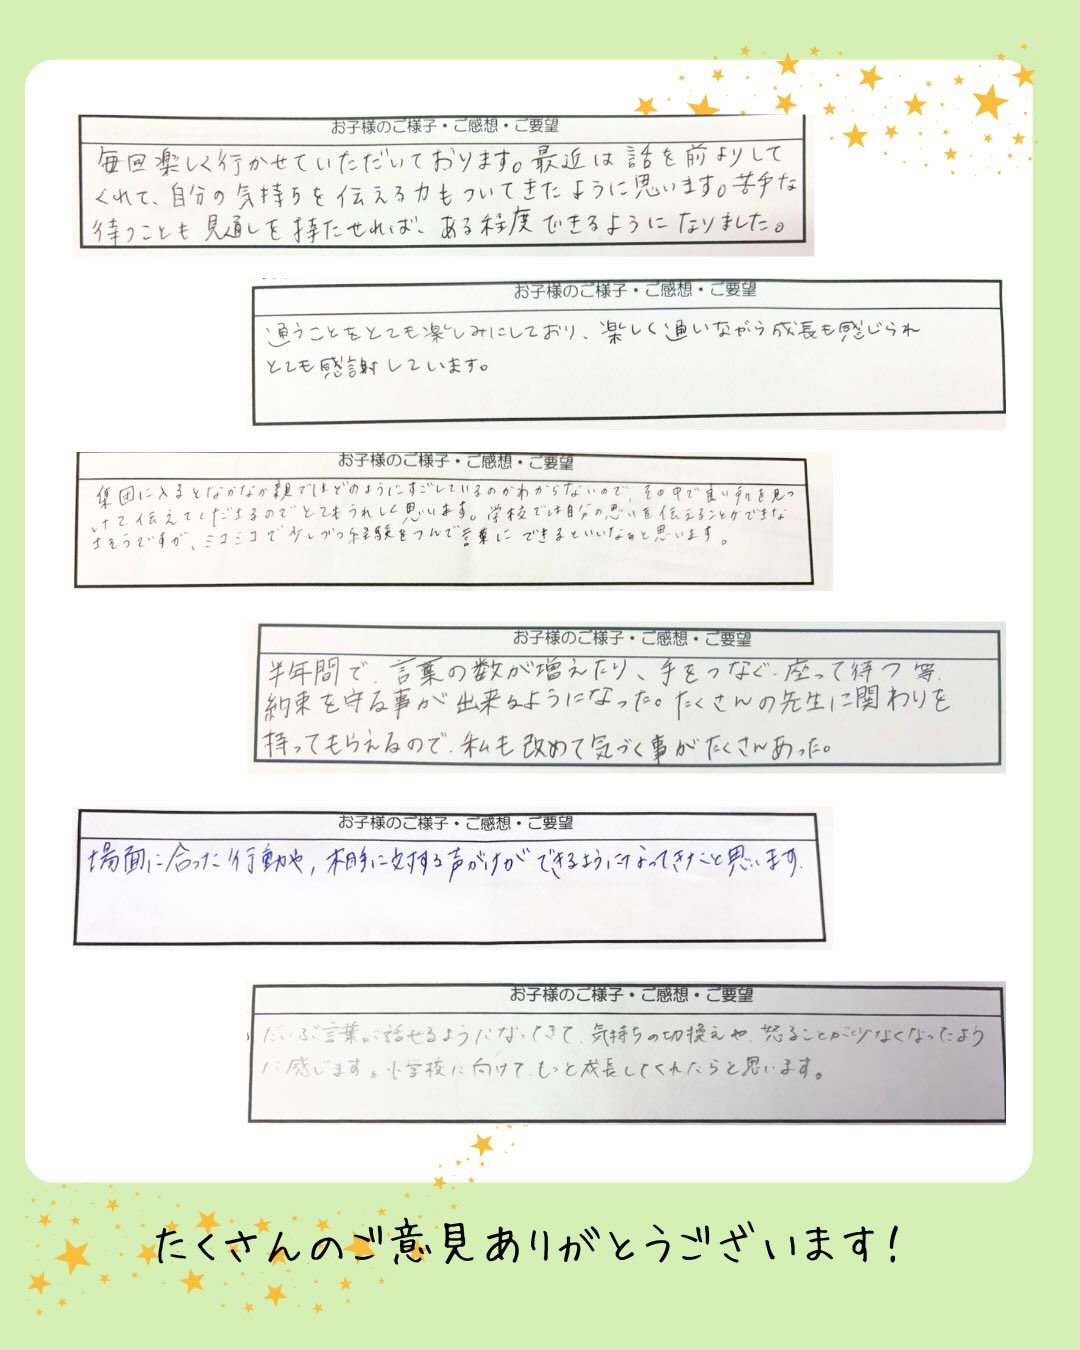 お子様のご様子・ご感想・ご要望
毎回楽しく行かせていただいております。最近は話を前よりして
くれて、自分の気持ちを伝える力もついてきたように思います。苦手な
待つことも見通しを持たせれば、ある程度できるようになりました。
お子様のご様子・ご感想・ご要望
通うことをとても楽しみにしており、楽しく通いながら成長も感じられ
とても感謝しています。
お子様のご様子・ご感想・ご要望
集団に入るとなかなか親ではどのようにすごしているのかわからないので、その中で良い所を見つ
けて伝えてくださるのでとてもうれしく思います。学校では自分の思いを伝えることができな
さそうですが、ミコミコで少しづつ経験をつんで言葉にできるといいなぁと思います。
お子様のご様子・ご感想・ご要望
半年間で、言葉の数が増えたり、手をつなぐ・座って待つ等、
約束を守る事が出来るようになった。たくさんの先生に関わりを
持ってもらえるので、私も改めて気づく事がたくさんあった。
お子様のご様子・ご感想・ご要望
場面に合った行動や、相手に対する声がけができるようになってきたと思います。
お子様のご様子・ご感想・ご要望
だいぶ言葉が話せるようになってきて、気持ちの切換えや、怒ることが少なくなったよう
に感じます。小学校に向けて、もっと成長してくれたらと思います。
たくさんのご意見ありがとうございます!